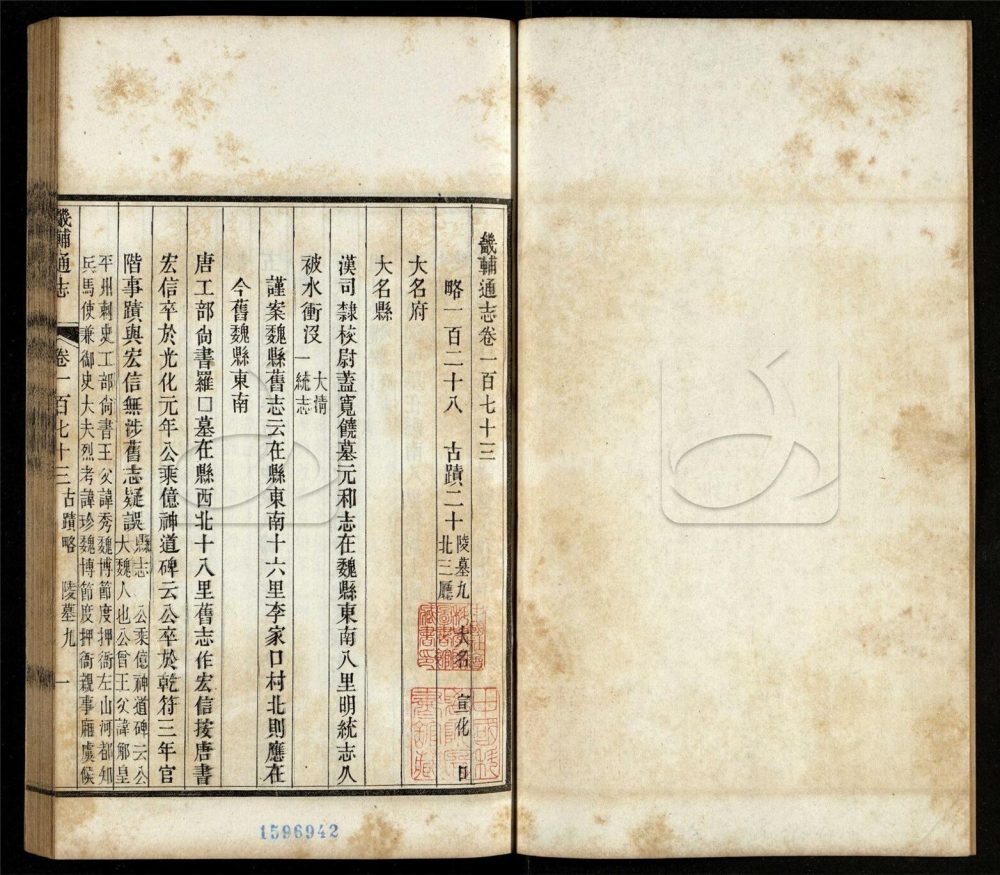 畿輔通志卷一百七十三
略一百二十八　古蹟二十　陵墓九　大名　宣化　口
北三廳
大名府
大名縣
漢司隸校尉蓋寬饒墓元和志在魏縣東南八里明統志久
被水衝沒大清
一統志
謹案魏縣舊志云在縣東南十六里李家口村北則應在
今舊魏縣東南
唐工部尙書羅口墓在縣西北十八里舊志作宏信按唐書
宏信卒於光化元年公乘億神道碑云公卒於乾符三年官
階事蹟與宏信無涉舊志疑誤縣志　公乘億神道碑云公
大魏人也公曾王父諱郍皇
平州刺史工部尙書王父諱秀魏博節度押衙左山河都知
兵馬使兼御史大夫烈考諱珍魏博節度押衙親事廂虞候
畿輔通志
卷一百七十三　古蹟略　陵墓九　一
1596942